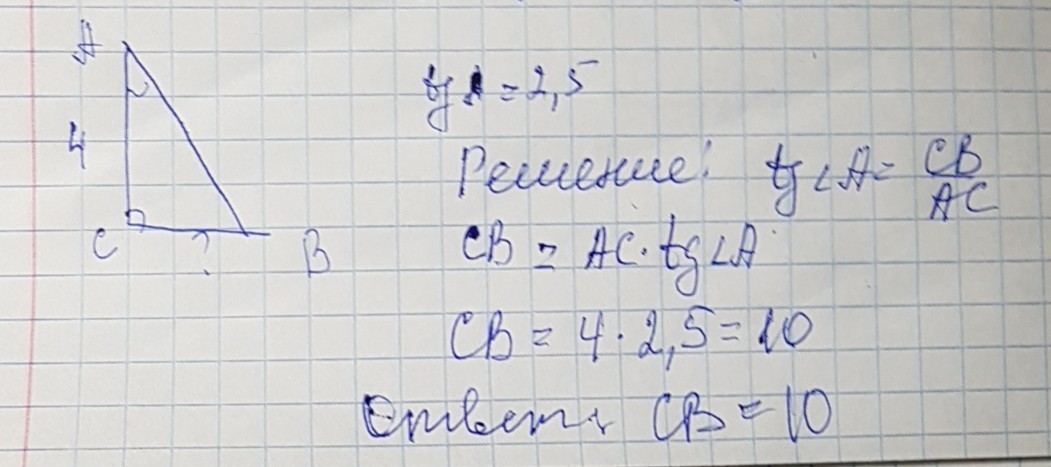 A
4
C ? B
tg A = 2,5
Решение: tg∠A = CB/AC
CB = AC · tg∠A
CB = 4 · 2,5 = 10
Ответ: CB = 10